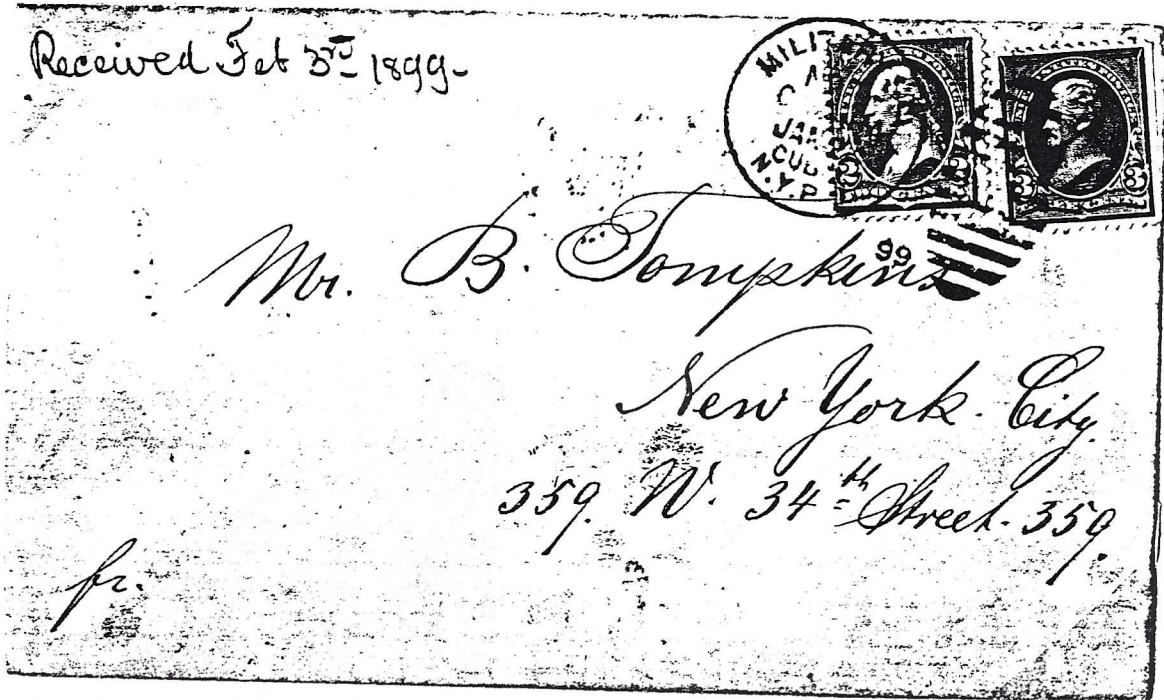 Received Feb 3rd 1899-
MILIT
JAN
CUB
N.Y.P
99
2 2
TWO CENTS
3 3
Mr. B. Tompkins
New York. City.
359. W. 34th Street. 359.
fr.